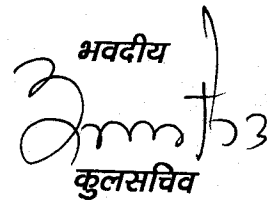 भवदीय
कुलसचिव